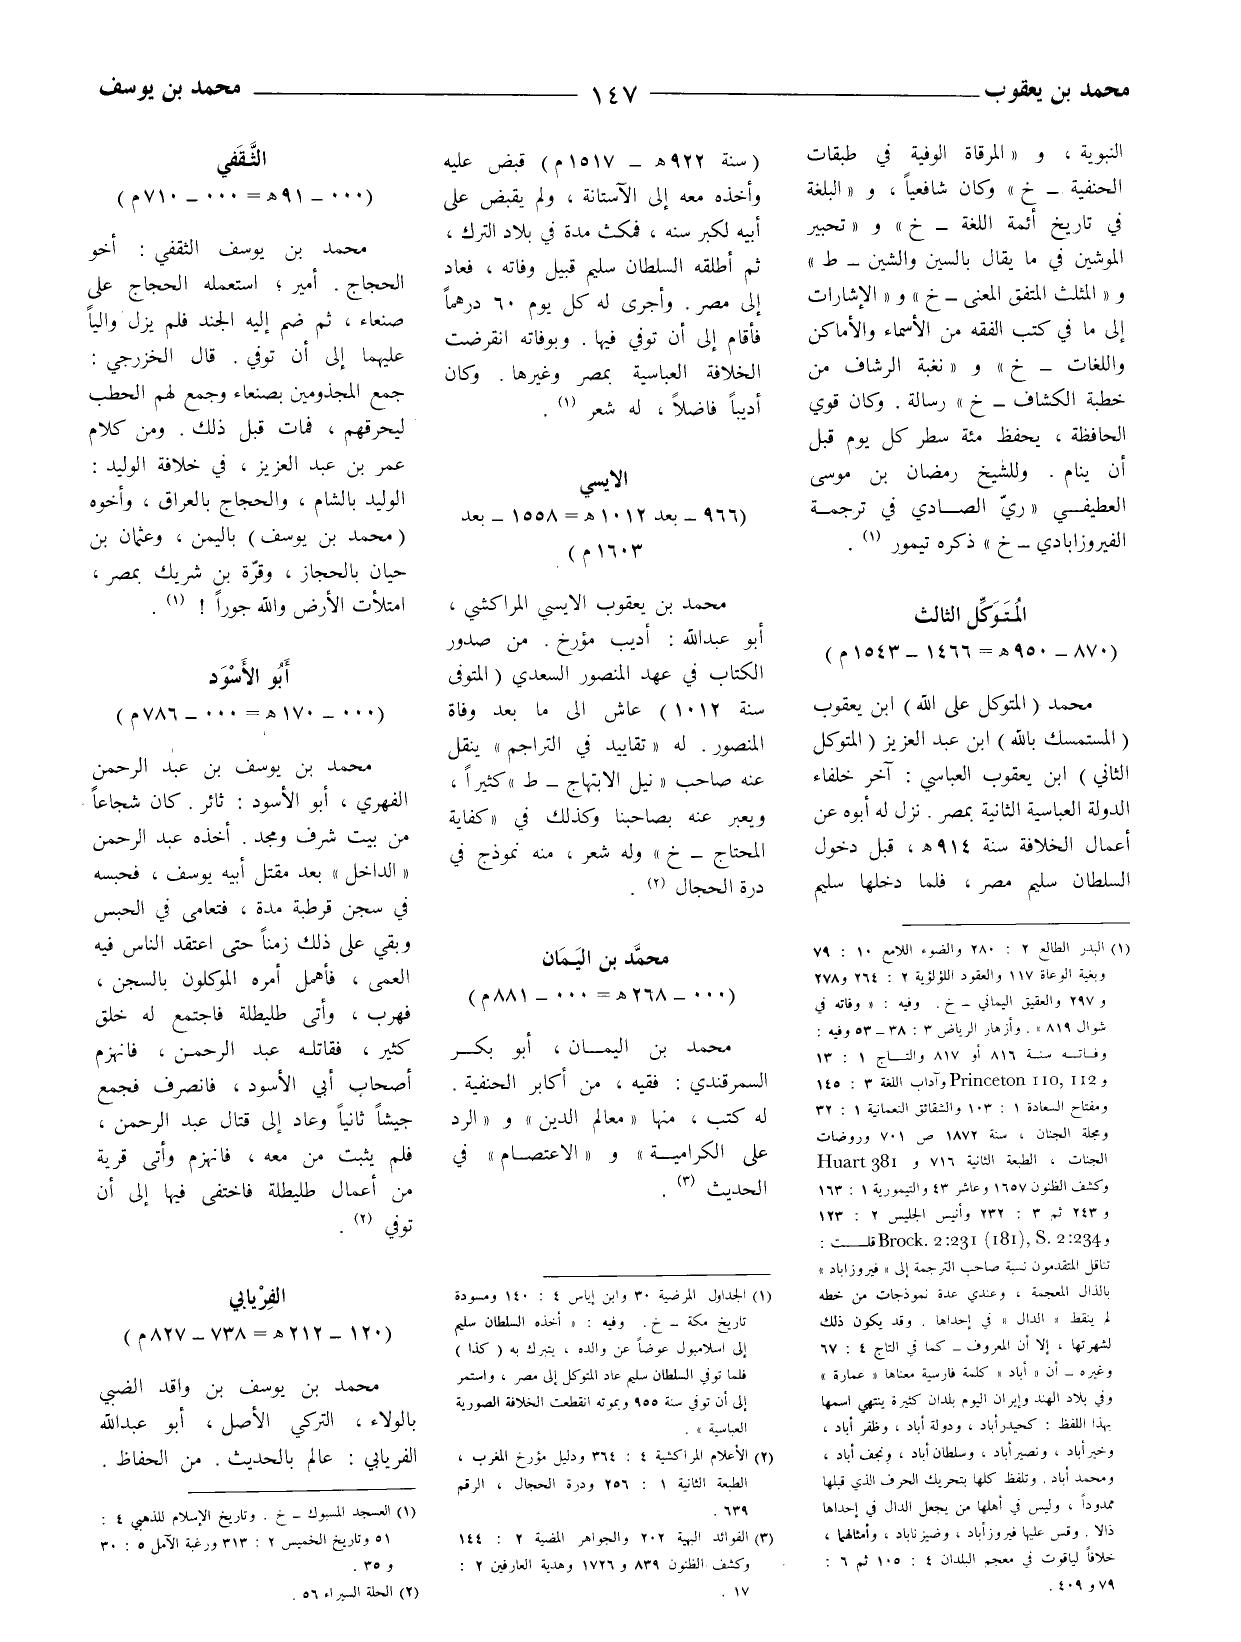 محمد بن يعقوب ١٤٧ محمد بن يوسف
النبوية ، و « المرقاة الوفية في طبقات
الحنفية ــ خ » وكان شافعياً ، و « البلغة
في تاريخ أئمة اللغة ــ خ » و « تحبير
الموشين في ما يقال بالسين والشين ــ ط »
و « المثلث المتفق المعنى ــ خ » و « الإشارات
إلى ما في كتب الفقه من الأسماء والأماكن
واللغات ــ خ » و « نغبة الرشاف من
خطبة الكشاف ــ خ » رسالة . وكان قوي
الحافظة ، يحفظ مئة سطر كل يوم قبل
أن ينام . وللشيخ رمضان بن موسى
العطيفــي « ريّ الصــادي في ترجمــة
الفيروزابادي ــ خ » ذكره تيمور (١) .
المُتَوَكِّل الثالث
(٨٧٠ ــ ٩٥٠ هـ = ١٤٦٦ ــ ١٥٤٣ م )
محمد ( المتوكل على الله ) ابن يعقوب
( المستمسك بالله ) ابن عبد العزيز ( المتوكل
الثاني ) ابن يعقوب العباسي : آخر خلفاء
الدولة العباسية الثانية بمصر . نزل له أبوه عن
أعمال الخلافة سنة ٩١٤ هـ ، قبل دخول
السلطان سليم مصر ، فلما دخلها سليم
(١) البدر الطالع ٢ : ٢٨٠ والضوء اللامع ١٠ : ٧٩
وبغية الوعاة ١١٧ والعقود اللؤلؤية ٢ : ٢٦٤ و٢٧٨
و ٢٩٧ والعقيق اليماني ــ خ . وفيه : « وفاته في
شوال ٨١٩ » . وأزهار الرياض ٣ : ٣٨ ــ ٥٣ وفيه :
وفـاتــه سنــة ٨١٦ أو ٨١٧ والتــاج ١ : ١٣
و Princeton 110, 112 وآداب اللغة ٣ : ١٤٥
ومفتاح السعادة ١ : ١٠٣ والشقائق النعمانية ١ : ٣٢
ومجلة الجنان ، سنة ١٨٧٢ ص ٧٠١ وروضات
الجنات ، الطبعة الثانية ٧١٦ و Huart 381
وكشف الظنون ١٦٥٧ وعاشر ٤٣ والتيمورية ١ : ١٦٣
و ٢٤٣ ثم ٣ : ٢٣٢ وأنيس الجليس ٢ : ١٢٣
و Brock. 2:231 (181), S. 2:234 قلــــت :
تناقل المتقدمون نسبة صاحب الترجمة إلى « فيروزاباد »
بالذال المعجمة ، وعندي عدة نموذجات من خطه
لم ينقط « الدال » في إحداها . وقد يكون ذلك
لشهرتها ، إلا أن المعروف ــ كما في التاج ٤ : ٦٧
وغيره ــ أن « أباد » كلمة فارسية معناها « عمارة »
وفي بلاد الهند وإيران اليوم بلدان كثيرة ينتهي اسمها
بهذا اللفظ : كحيدرأباد ، ودولة أباد ، وظفر أباد ،
وخيرأباد ، ونصيرأباد ، وسلطان أباد ، ونجف أباد ،
ومحمد أباد . وتلفظ كلها بتحريك الحرف الذي قبلها
ممدوداً ، وليس في أهلها من يجعل الدال في إحداها
ذالا . وقس عليها فيروزأباد ، وضيزناباد ، وأمثالهما ،
خلافاً لياقوت في معجم البلدان ٤ : ١٠٥ ثم ٦ :
٧٩ و ٤٠٩ .
( سنة ٩٢٢ هـ ــ ١٥١٧ م ) قبض عليه
وأخذه معه إلى الآستانة ، ولم يقبض على
أبيه لكبر سنه ، فمكث مدة في بلاد الترك ،
ثم أطلقه السلطان سليم قبيل وفاته ، فعاد
إلى مصر . وأجرى له كل يوم ٦٠ درهماً
فأقام إلى أن توفي فيها . وبوفاته انقرضت
الخلافة العباسية بمصر وغيرها . وكان
أديباً فاضلاً ، له شعر (١) .
الايسي
(٩٦٦ ــ بعد ١٠١٢ هـ = ١٥٥٨ ــ بعد
١٦٠٣ م )
محمد بن يعقوب الايسي المراكشي ،
أبو عبدالله : أديب مؤرخ . من صدور
الكتاب في عهد المنصور السعدي ( المتوفى
سنة ١٠١٢ ) عاش الى ما بعد وفاة
المنصور . له « تقاييد في التراجم » ينقل
عنه صاحب « نيل الابتهاج ــ ط » كثيراً ،
ويعبر عنه بصاحبنا وكذلك في « كفاية
المحتاج ــ خ » وله شعر ، منه نموذج في
درة الحجال (٢) .
محمَّد بن اليَمَان
(٠٠٠ ــ ٢٦٨ هـ = ٠٠٠ ــ ٨٨١ م )
محمد بن اليمــان ، أبو بكــر
السمرقندي : فقيه ، من أكابر الحنفية .
له كتب ، منها « معالم الدين » و « الرد
على الكراميــة » و « الاعتصــام » في
الحديث (٣) .
(١) الجداول المرضية ٣٠ وابن إياس ٤ : ١٤٠ ومسودة
تاريخ مكة ــ خ . وفيه : « أخذه السلطان سليم
إلى اسلامبول عوضاً عن والده ، يتبرك به ( كذا )
فلما توفي السلطان سليم عاد المتوكل إلى مصر ، واستمر
إلى أن توفي سنة ٩٥٥ وبموته انقطعت الخلافة الصورية
العباسية » .
(٢) الأعلام المراكشية ٤ : ٣٦٤ ودليل مؤرخ المغرب ،
الطبعة الثانية ١ : ٢٥٦ ودرة الحجال ، الرقم
٦٣٩ .
(٣) الفوائد البهية ٢٠٢ والجواهر المضية ٢ : ١٤٤
وكشف الظنون ٨٣٩ و ١٧٢٦ وهدية العارفين ٢ :
١٧ .
الثَّقَفي
(٠٠٠ ــ ٩١ هـ = ٠٠٠ ــ ٧١٠ م )
محمد بن يوسف الثقفي : أخو
الحجاج . أمير ؛ استعمله الحجاج على
صنعاء ، ثم ضم إليه الجند فلم يزل والياً
عليهما إلى أن توفي . قال الخزرجي :
جمع المجذومين بصنعاء وجمع لهم الحطب
ليحرقهم ، فمات قبل ذلك . ومن كلام
عمر بن عبد العزيز ، في خلافة الوليد :
الوليد بالشام ، والحجاج بالعراق ، وأخوه
( محمد بن يوسف ) باليمن ، وعثمان بن
حيان بالحجاز ، وقرّة بن شريك بمصر ،
امتلأت الأرض والله جوراً ! (١) .
أَبُو الأَسْوَد
(٠٠٠ ــ ١٧٠ هـ = ٠٠٠ ــ ٧٨٦ م )
محمد بن يوسف بن عبد الرحمن
الفهري ، أبو الأسود : ثائر . كان شجاعاً
من بيت شرف ومجد . أخذه عبد الرحمن
« الداخل » بعد مقتل أبيه يوسف ، فحبسه
في سجن قرطبة مدة ، فتعامى في الحبس
وبقي على ذلك زمناً حتى اعتقد الناس فيه
العمى ، فأهمل أمره الموكلون بالسجن ،
فهرب ، وأتى طليطلة فاجتمع له خلق
كثير ، فقاتلــه عبد الرحمــن ، فانهزم
أصحاب أبي الأسود ، فانصرف فجمع
جيشاً ثانياً وعاد إلى قتال عبد الرحمن ،
فلم يثبت من معه ، فانهزم وأتى قرية
من أعمال طليطلة فاختفى فيها إلى أن
توفي (٢) .
الفِرْيابي
(١٢٠ ــ ٢١٢ هـ = ٧٣٨ ــ ٨٢٧ م )
محمد بن يوسف بن واقد الضبي
بالولاء ، التركي الأصل ، أبو عبدالله
الفريابي : عالم بالحديث . من الحفاظ .
(١) العسجد المسبوك ــ خ . وتاريخ الإسلام للذهبي ٤ :
٥١ وتاريخ الخميس ٢ : ٣١٣ ورغبة الآمل ٥ : ٣٠
و ٣٥ .
(٢) الحلة السيراء ٥٦ .